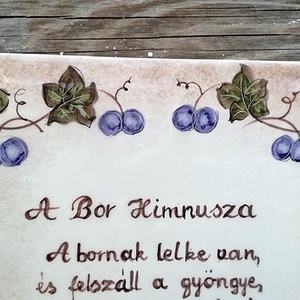 A Bor Himnusza
A bornak lelke van,
és felszáll a gyöngye,